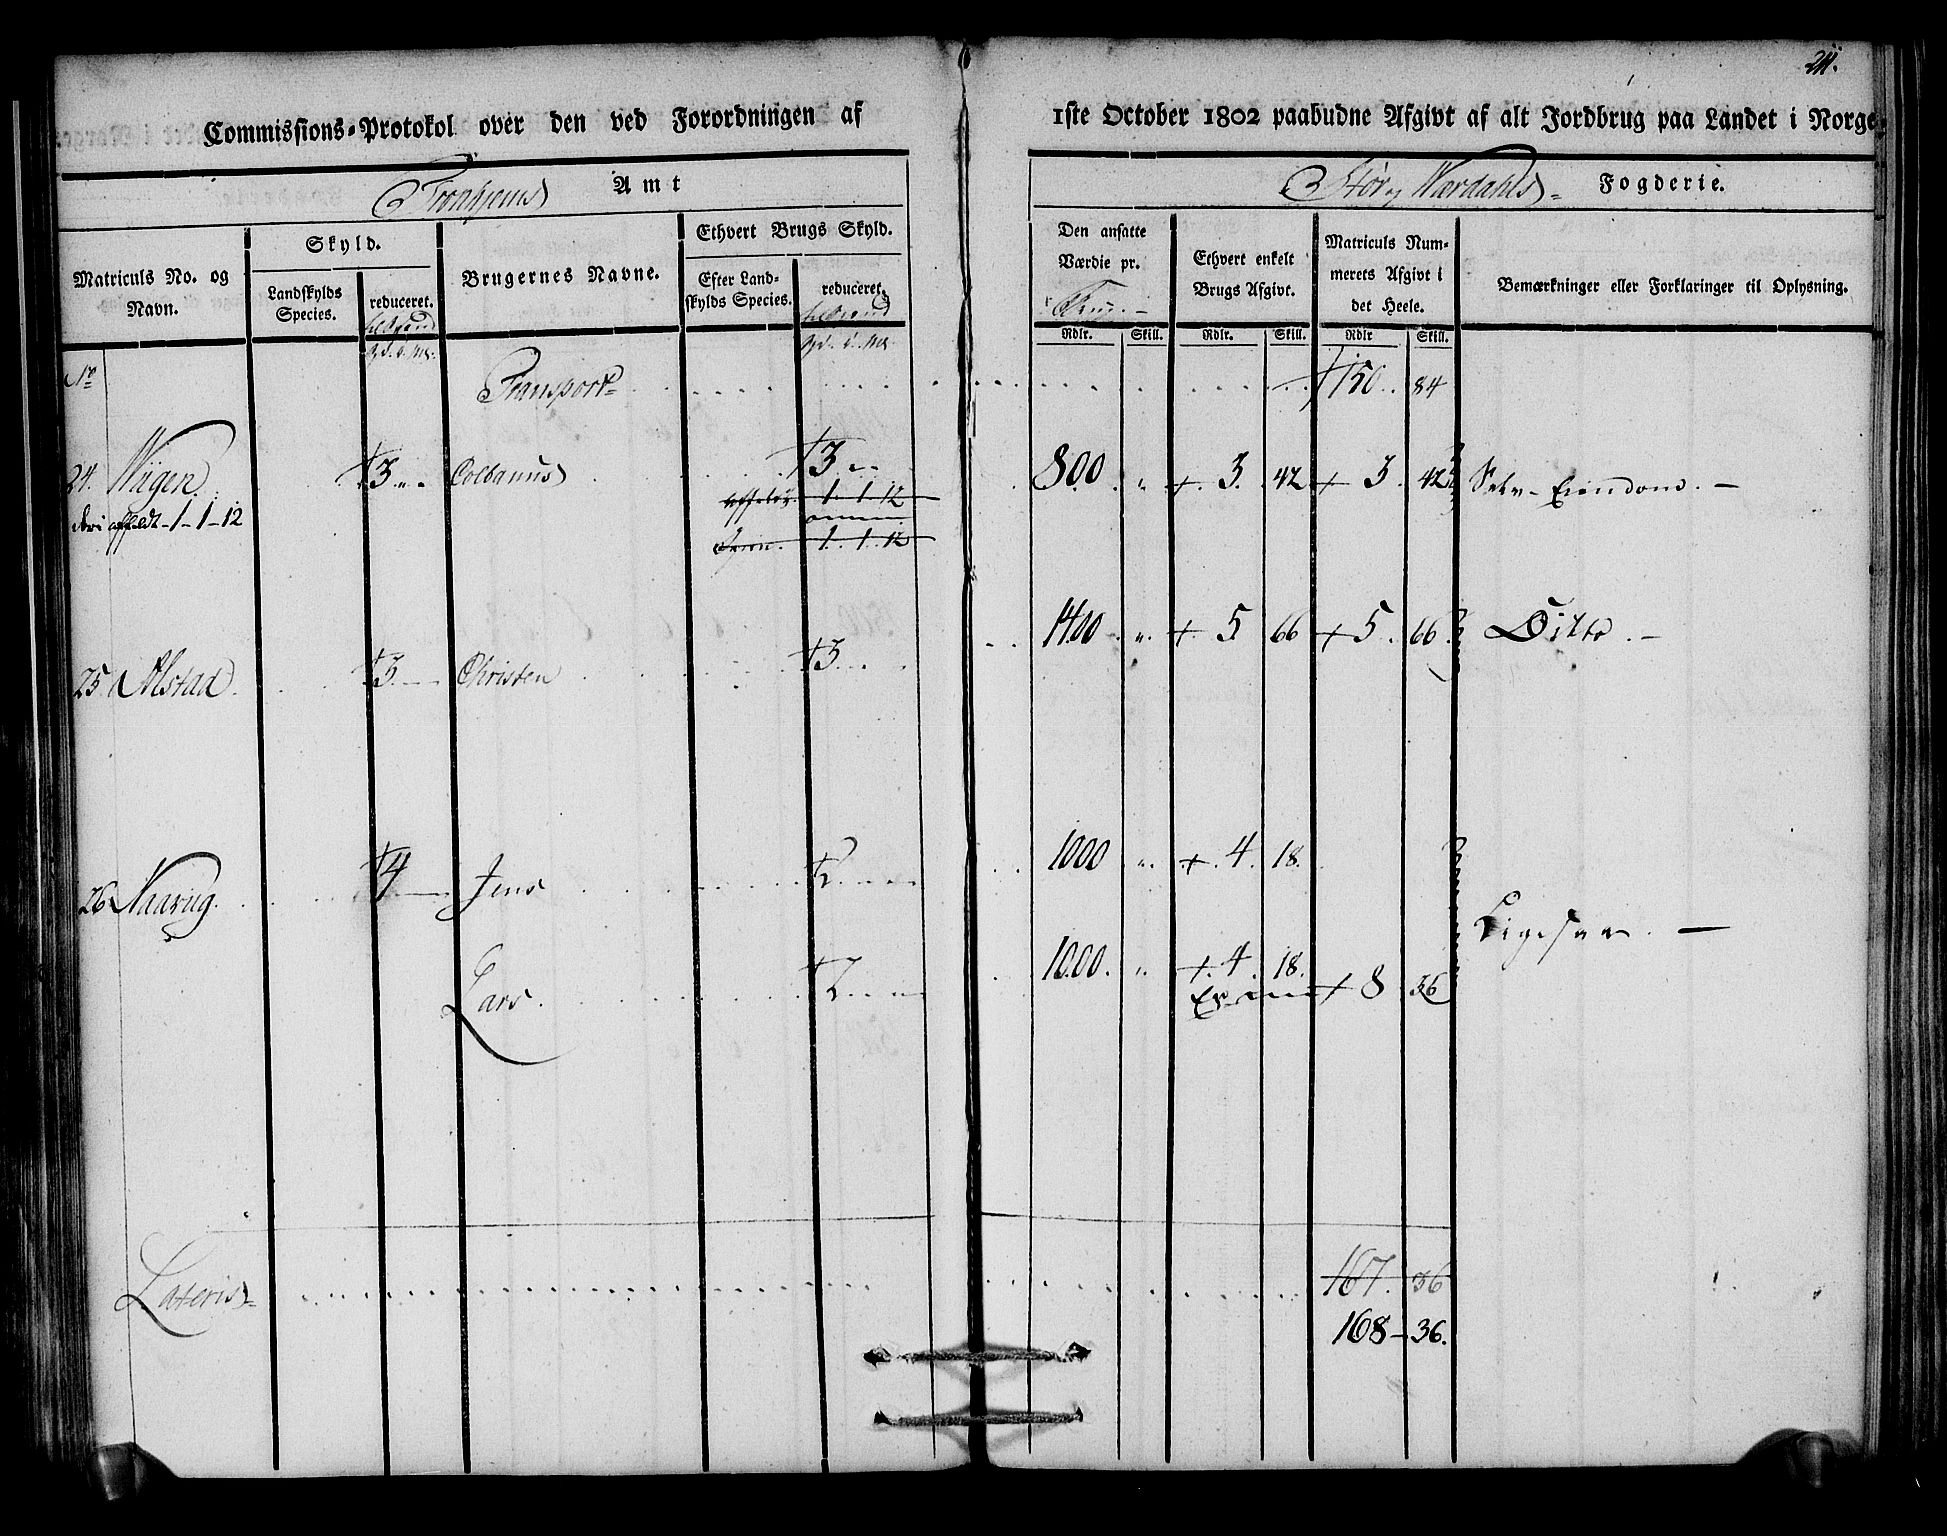 211.
Commissions-Protokol over den ved Forordningen af 1ste October 1802 paabudne Afgivt af alt Jordbrug paa Landet i Norge.
Tronhjems Amt
Stør og Værdahls Fogderie.
Matriculs No. og Navn.
Skyld.
Landskylds Species.
reduceret.
Brugernes Navne.
Ethvert Brugs Skyld.
Efter Landskylds Species.
reduceret.
Den ansatte Værdie pr.
Rdlr. Skill.
Ethvert enkelt Brugs Afgivt.
Rdlr. Skill.
Matriculs Nummerets Afgivt i det Heele.
Rdlr Skill.
Bemærkninger eller Forklaringer til Oplysning.
No Transport 150 84
24. Wiigen 3 Colbanus 3 800 " 3. 42 3 42 Selv-Eiendom. –
affeldt – 1 – 1 – 12 1. 1. 12
1. 1. 12
25 Alstad 3 Christen 3 1400 " 5 66 5. 66 Ditto. –
26 Naavug 4 Jens 2 1000 " 4. 18.
Ligesaa. –
Lars 2 1000. " 4. 18.
8 36
Lateris 167. 36
168 – 36.